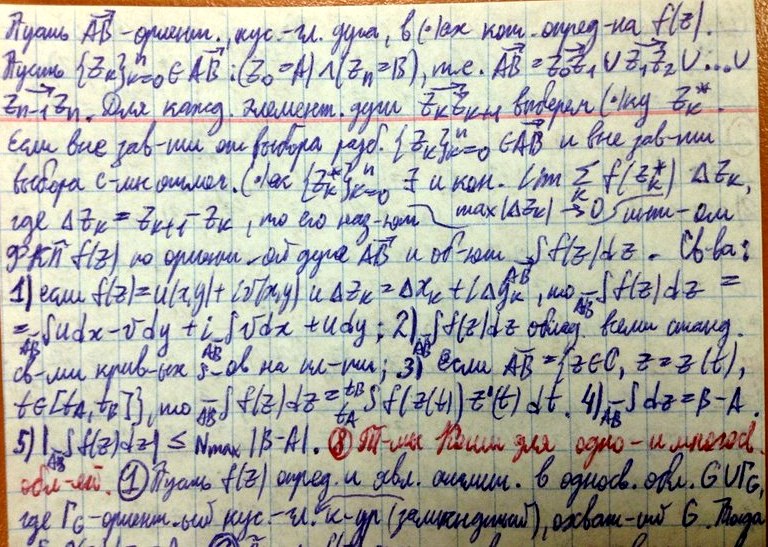 Пусть A͞B⃗ -ориент., кус.-гл. дуга, в (·)ах кот. опред-на f(z).
Пусть {z_k}ⁿ_{k=0} ∈ AB⃗ : (z_0=A) ∧ (z_n=B), т.е. AB⃗ = z_0z_1⃗ ∪ z_1z_2⃗ ∪ ... ∪
z_{n-1}z_n⃗. Для кажд. элемент. дуги z_kz_{k+1}⃗ выберем (·)ку z_k^*.
Если вне зав-ти от выбора разб. {z_k}ⁿ_{k=0} ∈ AB⃗ и вне зав-ти
выбора с-мы отмеч. (·)ек {z_k^*}ⁿ_{k=0} ∃ и кон. lim Σ_k f(z_k^*) Δz_k,
где Δz_k = z_{k+1} - z_k, то его наз-ют max|Δz_k| → 0 инт-ом
ФКП f(z) по ориент-ой дуге AB⃗ и об-ют ∫_{AB⃗} f(z)dz. Св-ва:
1) если f(z)=u(x,y)+iv(x,y) и Δz_k=Δx_k+iΔy_k, то ∫_{AB⃗} f(z)dz =
= ∫_{AB⃗} udx-vdy + i ∫_{AB⃗} vdx+udy; 2) ∫_{AB⃗} f(z)dz облад. всеми станд.
св-ми крив-ых ∫-ов на пл-ти; 3) Если AB⃗ = {z∈C, z=z(t),
t∈[t_A, t_B]}, то ∫_{AB⃗} f(z)dz = ∫_{t_A}^{t_B} f(z(t)) z'(t) dt. 4) ∫_{AB⃗} dz = B-A.
5) |∫_{AB⃗} f(z)dz| ≤ N_max |B-A|. ⑧ Т-мы Коши для одно- и многосв.
обл-ей. ① Пусть f(z) опред. и явл. аналит. в односв. обл. G∪Γ_G,
где Γ_G-ориент-ый кус.-гл. к-ур (замкнутый), охват-ий G. Тогда